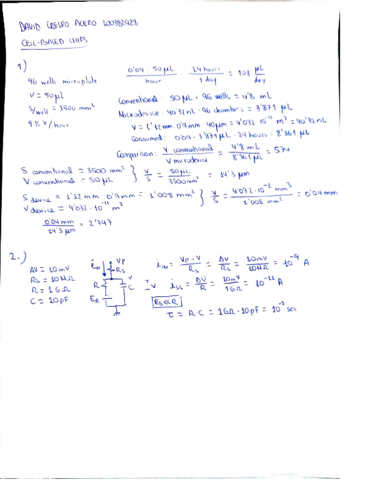 CELL-BASED CHIPS
1)
96 wells microplate
V = 50 µL
4% V/hour
0'04 · 50 µL / hour · 24 hours / 1 day = 108 µL / day
Conventional: 50 µL · 96 wells = 4'8 mL
Microdevice: 40'32 nL · 96 chambers = 3'871 µL
V = 1'12 mm · 0'9 mm · 40 µm = 4'032 · 10⁻¹¹ m³ = 40'32 nL
Consumed: 0'04 · 3'871 µL · 24 hours = 8'361 µL
Comparison: V conventional / V microdevice = 4'8 mL / 8'361 µL = 574
S conventional = 3500 mm²
V conventional = 50 µL
} V/S = 50 µL / 3500 mm² = 14'3 µm
S device = 1'12 mm · 0'9 mm = 1'008 mm²
V device = 4'032 · 10⁻¹¹ m³
} V/S = 4'032 · 10⁻² mm³ / 1'008 mm² = 0'04 mm
0'04 mm / 14'3 µm = 2'797
2.)
ΔV = 10 mV
Rs = 10 MΩ
R = 1 GΩ
C = 10 pF
Vp
Rs
R
C
V
Er
= Vp - V / Rs = ΔV / Rs = 10 mV / 10 MΩ = 10⁻⁹ A
iss = ΔV / R = 10 mV / 1 GΩ = 10⁻¹¹ A
Rs << R
τ = R · C = 1 GΩ · 10 pF = 10⁻² sec